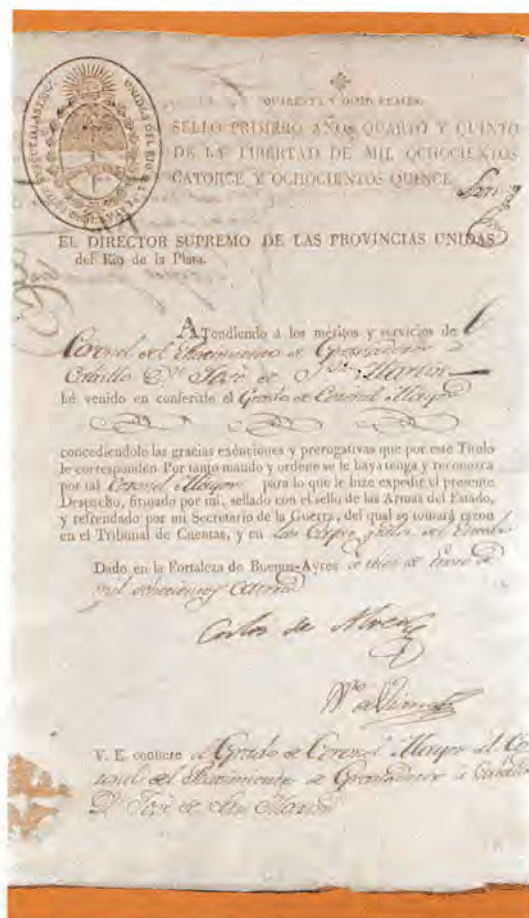 UNIDAS DEL RIO
QUARENTA Y OCHO REALES.
SELLO PRIMERO AÑOS QUARTO Y QUINTO
DE LA LIBERTAD DE MIL OCHOCIENTOS
CATORCE Y OCHOCIENTOS QUINCE
EL DIRECTOR SUPREMO DE LAS PROVINCIAS UNIDAS
del Rio de la Plata.
ATendiendo á los méritos y servicios de
Coronel del de Granaderos á
Caballo Dn. José de Sn. Martin
hé venido en conferirle el Grado de Coronel Mayor
concediendole las gracias exênciones y prerogativas que por este Titulo
le corresponden. Por tanto mando y ordeno se le haya tenga y reconozca
por tal Coronel Mayor para lo que le hize expedir el presente
Despacho, firmado por mi, sellado con el sello de las Armas del Estado,
y refrendado por mi Secretario de la Guerra, del qual se tomará razon
en el Tribunal de Cuentas, y en las Caxas grales. del Estado
Dado en la Fortaleza de Buenos-Ayres a diez de Enero de
mil ochocientos
Carlos de
V. E. confiere el Grado de Coronel Mayor al Co
ronel del de Granaderos á Caballo
D. José de San Martin